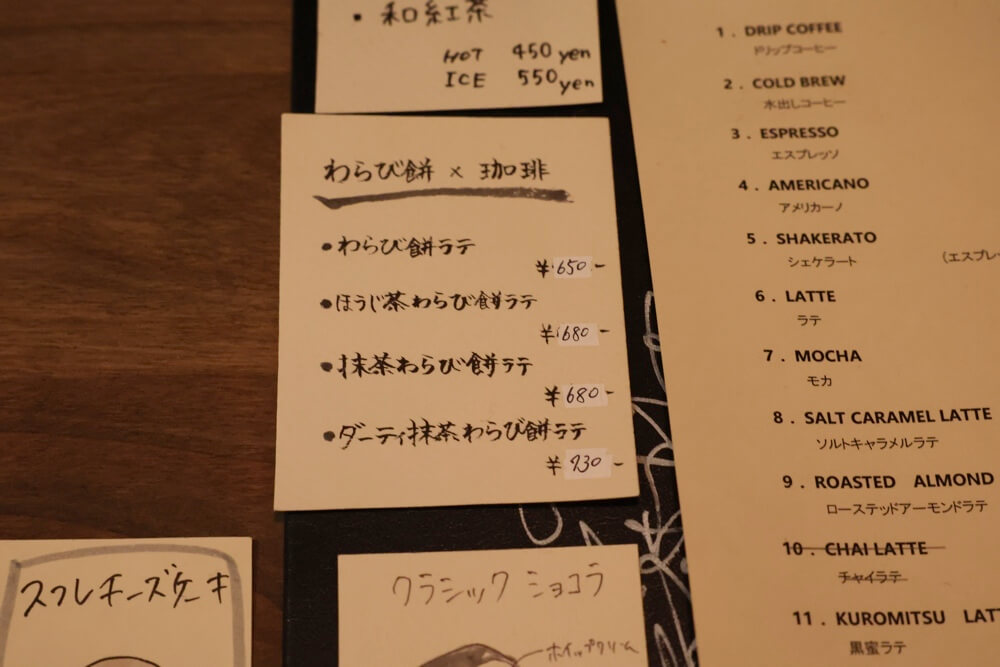 ・和紅茶
HOT 450yen
ICE 550yen
わらび餅 × 珈琲
・わらび餅ラテ
¥650-
・ほうじ茶わらび餅ラテ
¥680-
・抹茶わらび餅ラテ
¥680-
・ダーティ抹茶わらび餅ラテ
¥730-
スフレチーズケーキ
クラシックショコラ
ホイップクリーム
1. DRIP COFFEE
ドリップコーヒー
2. COLD BREW
水出しコーヒー
3. ESPRESSO
エスプレッソ
4. AMERICANO
アメリカーノ
5. SHAKERATO
シェケラート (エスプレ
6. LATTE
ラテ
7. MOCHA
モカ
8. SALT CARAMEL LATTE
ソルトキャラメルラテ
9. ROASTED ALMOND
ローステッドアーモンドラテ
10. CHAI LATTE
チャイラテ
11. KUROMITSU LAT
黒蜜ラテ